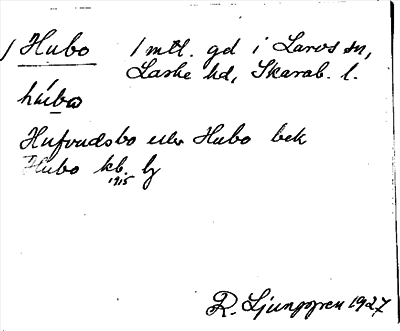 / Hubo 1 mtl. gd i Larvs sn,
Laske hd, Skarab. l.
húbω
Hufvudsbo eller Hubo bek
Hubo kb. 1915 
R. Ljunggren 1927